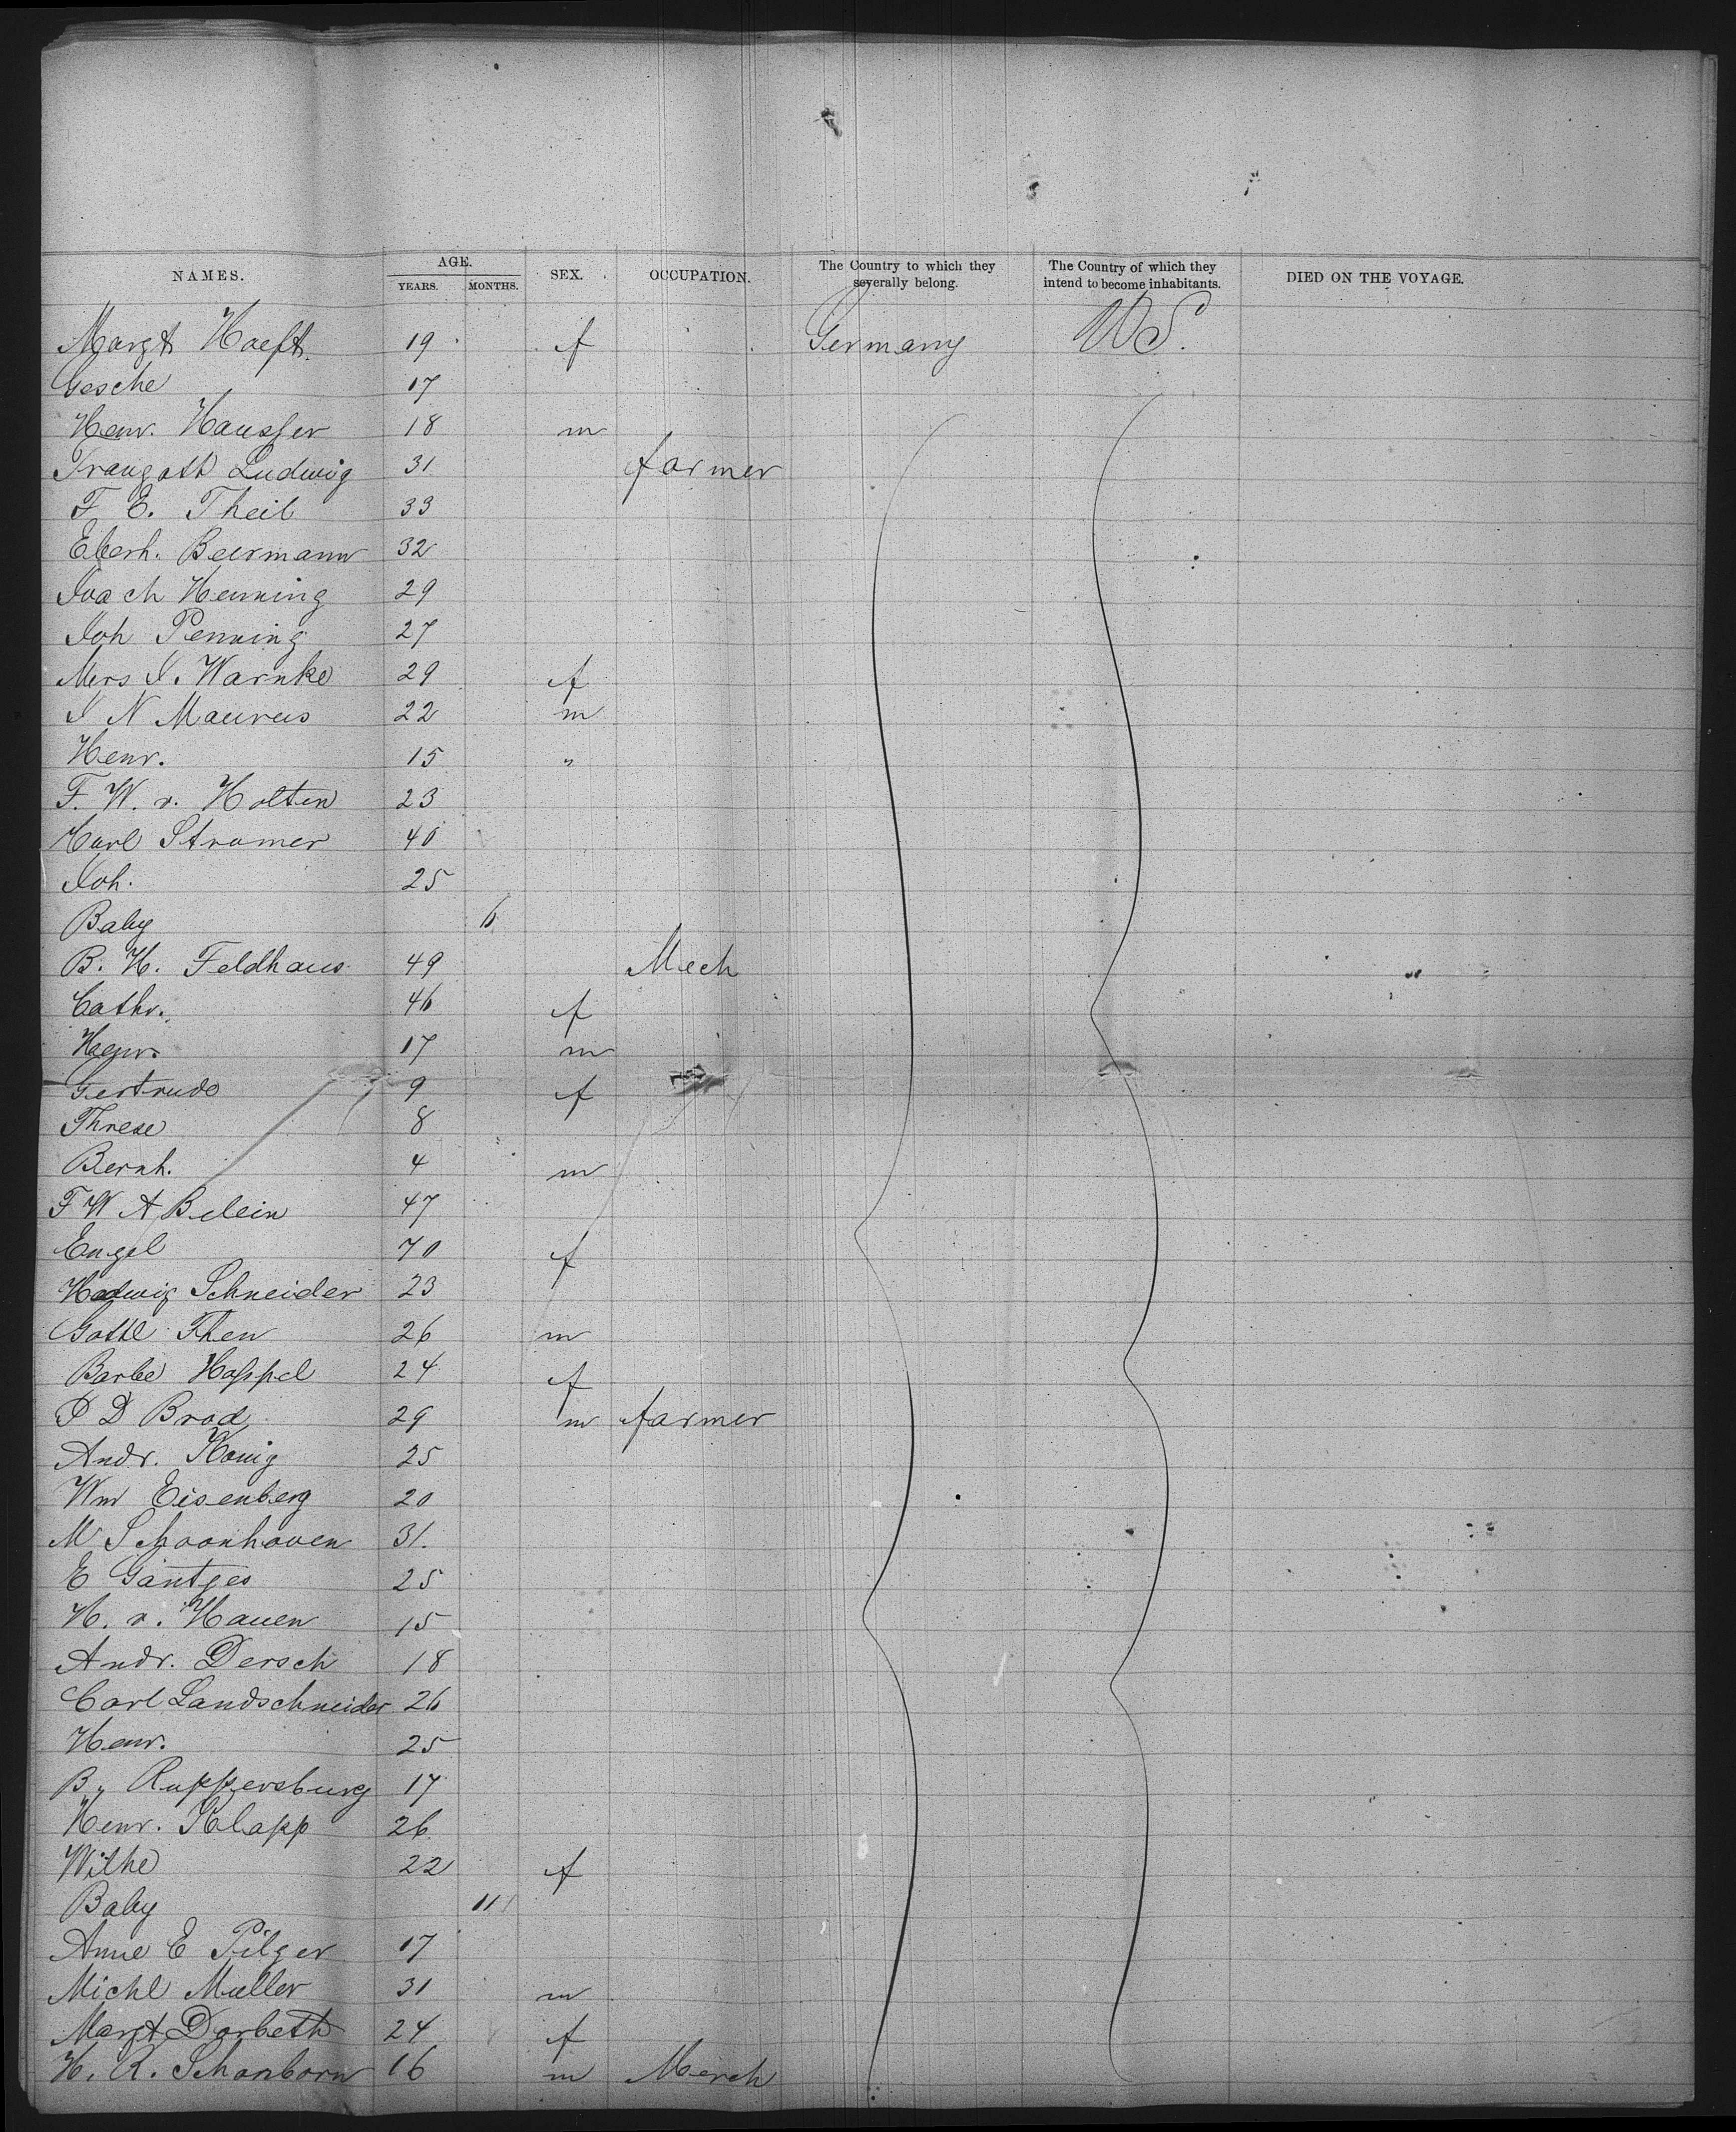 NAMES. AGE. YEARS. MONTHS. SEX. OCCUPATION. The Country to which they severally belong. The Country of which they intend to become inhabitants. DIED ON THE VOYAGE.
Margt Hoeft 19 f Germany U.S.
Gesche 17
Henr. Hausser 18 m
Traugott Ludwig 31 farmer
F E. Theil 33
Eberh. Beermann 32
Joach Henning 29
Joh Penning 27
Mrs J. Warnke 29 f
J N Maurus 22 m
Henr. 15 "
F. W. v. Holten 23
Carl Stramer 40
Joh. 25
Baby 6
B. H. Feldhaus 49 Mech
Cathr. 46 f
Henr. 17 m
Gertrude 9 f
Threse 8
Bernh. 4 m
F W A Belein 47
Engel 70 f
Hedwig Schneider 23
Gottl Then 26 m
Barbe Hoppel 24 f
P D Brod 29 m farmer
Andr. Konig 25
Wm Eisenberg 20
M Schoonhoven 31.
E Gantjes 25
H. v. Hauen 15
Andr. Dersch 18
Carl Landschneider 26
Henr. 25
B. Ruppersburg 17
Henr. Klapp 26
Wilhe 22 f
Baby 11
Anne E Pilger 17
Michl Muller 31 m
Margt Dorbeth 24 f
H. R. Schonborn 16 m Merch